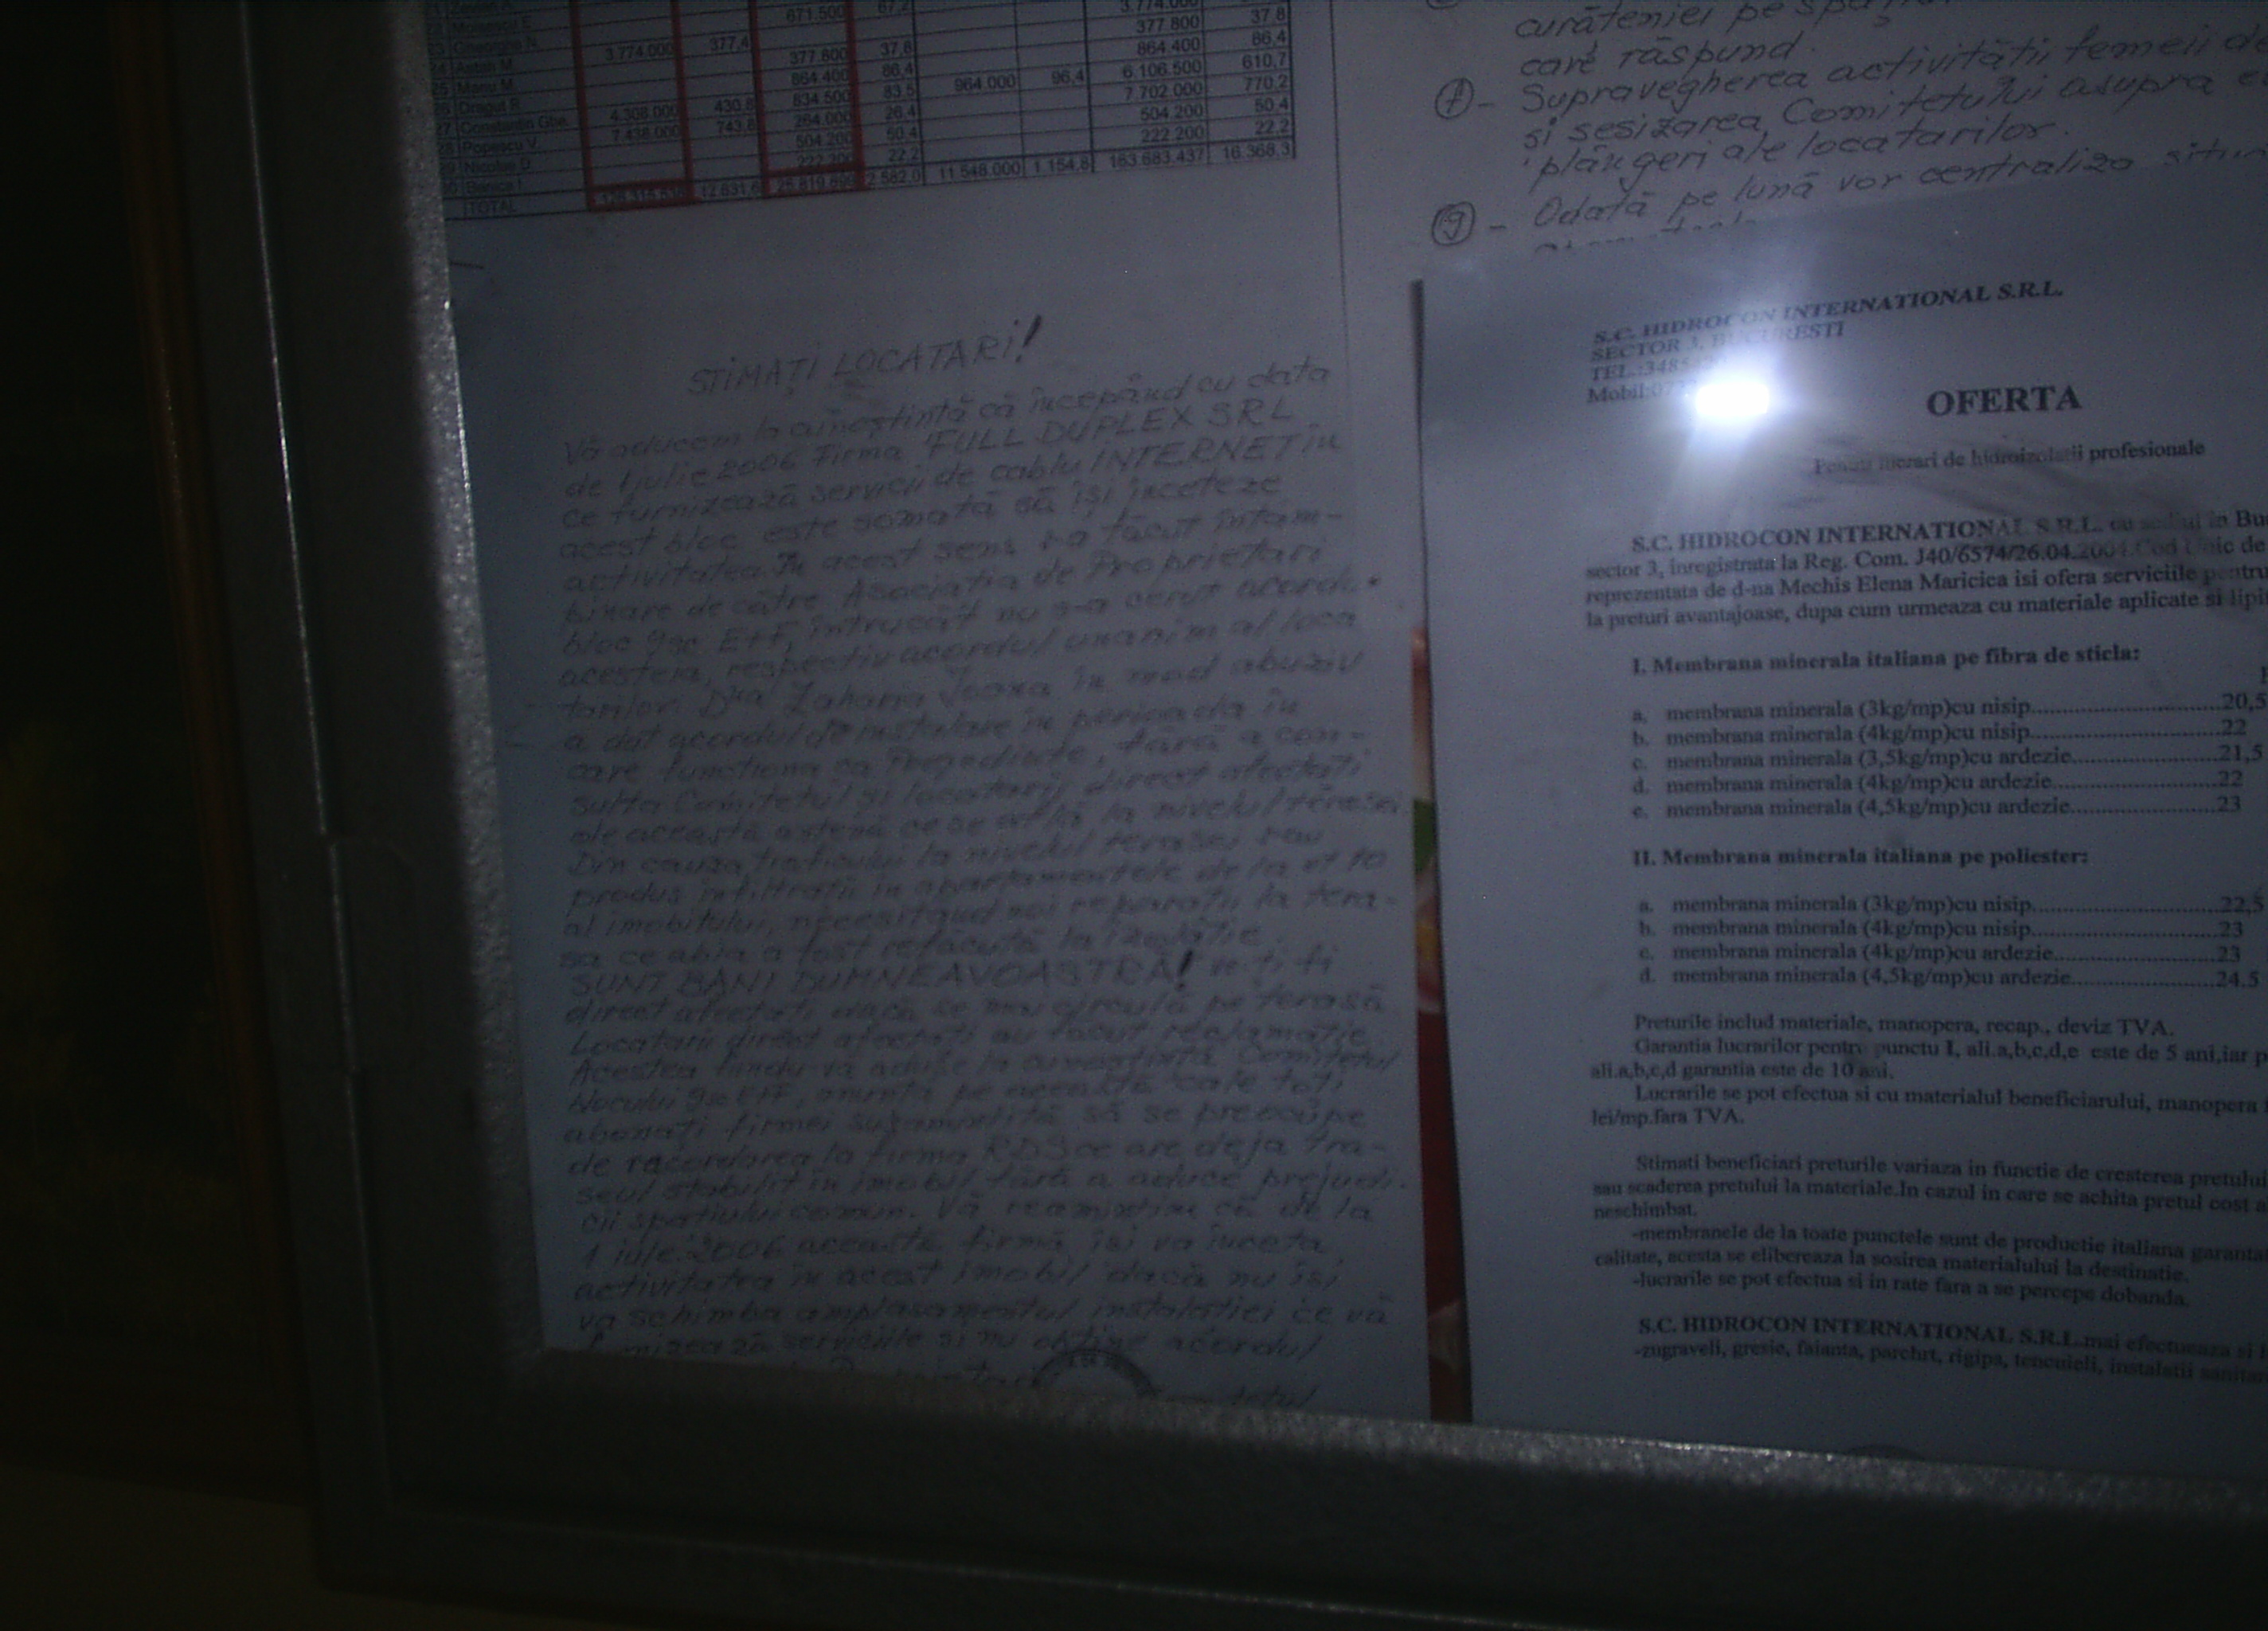 671.500 67,2
Munteanu E.
23 Gheorghe N. 3.774.000 377,4 377.800 37,8
377.800 37,8 864.400 86,4
25 Manu M. 864.400 86,4 964.000 96,4 6.106.500 610,7
26 Dragut R. 4.308.000 430,8 834.500 83,5 7.702.000 770,2
27 Constantin Ghe. 7.438.000 743,8 264.000 26,4 504.200 50,4
28 Popescu V. 504.200 50,4 222.200 22,2
Nicolae D. 222.200 22,2
TOTAL 2.582,0 11.548.000 1.154,8 163.683.437 16.368,3
curăteniei pe
care răspund.
(f) - Supravegherea activității femeii de
și sesizarea Comitetului asupra
plângeri ale locatarilor.
(g) - Odată pe lună vor centraliza
STIMAȚI LOCATARI!
Vă aducem la cunoștință că începând cu data
de 1 julie 2006 firma "FULL DUPLEX SRL
ce furnizează servicii de cablu INTERNET în
acest bloc este somată să își înceteze
activitatea. În acest sens s-a făcut întâm-
binare de către Asociația de Proprietari
bloc E+F, întrucât nu s-a cerut acordul
acesteia, respectiv acordul unanim al loca
tarilor. D-na Zaharia în mod abuziv
a dat acordul de instalare în perioada în
care funcționa ca Președinte, fără a con-
sulta Comitetul și locatarii direct afectați
de această antenă ce se află la nivelul terasei.
Din cauza traficului la nivelul terasei s-au
produs infiltrații în apartamentele de la et 10
al imobilului, necesitând noi reparații la tera-
sa ce abia a fost refăcută la izolație
SUNT BANI DUMNEAVOASTRĂ! Ve-ți fi
direct afectați dacă se mai circulă pe terasă
Locatarii direct afectați au făcut reclamație.
Acestea fiindu-vă aduse la cunoștință Comitetul
blocului E+F, anunță pe această cale toți
abonați firmei să se preocupe
de racordarea la firma RDS ce are deja tra-
seul stabilit în imobil fără a aduce prejudi-
cii spațiului comun. Vă reamintim că de la
1 iulie 2006 această firmă își va înceta
activitatea în acest imobil dacă nu își
va schimba amplasamentul instalației ce vă
furnizează serviciile și nu obține acordul
S.C. HIDROCON INTERNATIONAL S.R.L.
SECTOR 3, BUCURESTI
TEL.:348
Mobil:07
OFERTA
Pentru lucrari de hidroizolatii profesionale
S.C. HIDROCON INTERNATIONAL S.R.L. cu sediul in Bu
sector 3, inregistrata la Reg. Com. J40/6574/26.04.2004 Cod Unic de
reprezentata de d-na Mechis Elena Maricica isi ofera serviciile pentru
la preturi avantajoase, dupa cum urmeaza cu materiale aplicate si lipit
I. Membrana minerala italiana pe fibra de sticla:
a. membrana minerala (3kg/mp)cu nisip..............................20,5
b. membrana minerala (4kg/mp)cu nisip..............................22
c. membrana minerala (3,5kg/mp)cu ardezie........................21,5
d. membrana minerala (4kg/mp)cu ardezie..........................22
e. membrana minerala (4,5kg/mp)cu ardezie........................23
II. Membrana minerala italiana pe poliester:
a. membrana minerala (3kg/mp)cu nisip..............................22,5
b. membrana minerala (4kg/mp)cu nisip..............................23
c. membrana minerala (4kg/mp)cu ardezie..........................23
d. membrana minerala (4,5kg/mp)cu ardezie........................24.5
Preturile includ materiale, manopera, recap., deviz TVA.
Garantia lucrarilor pentru punctu I, ali.a,b,c,d,e este de 5 ani,iar p
ali.a,b,c,d garantia este de 10 ani.
Lucrarile se pot efectua si cu materialul beneficiarului, manopera
lei/mp.fara TVA.
Stimati beneficiari preturile variaza in functie de cresterea pretului
sau scaderea pretului la materiale.In cazul in care se achita pretul cost a
neschimbat.
-membranele de la toate punctele sunt de productie italiana garanta
calitate, acesta se elibereaza la sosirea materialului la destinatie.
-lucrarile se pot efectua si in rate fara a se percepe dobanda.
S.C. HIDROCON INTERNATIONAL S.R.L.mai efectueaza si
-zugraveli, gresie, faianta, parchet, rigips, tencuieli, instalatii sanitar